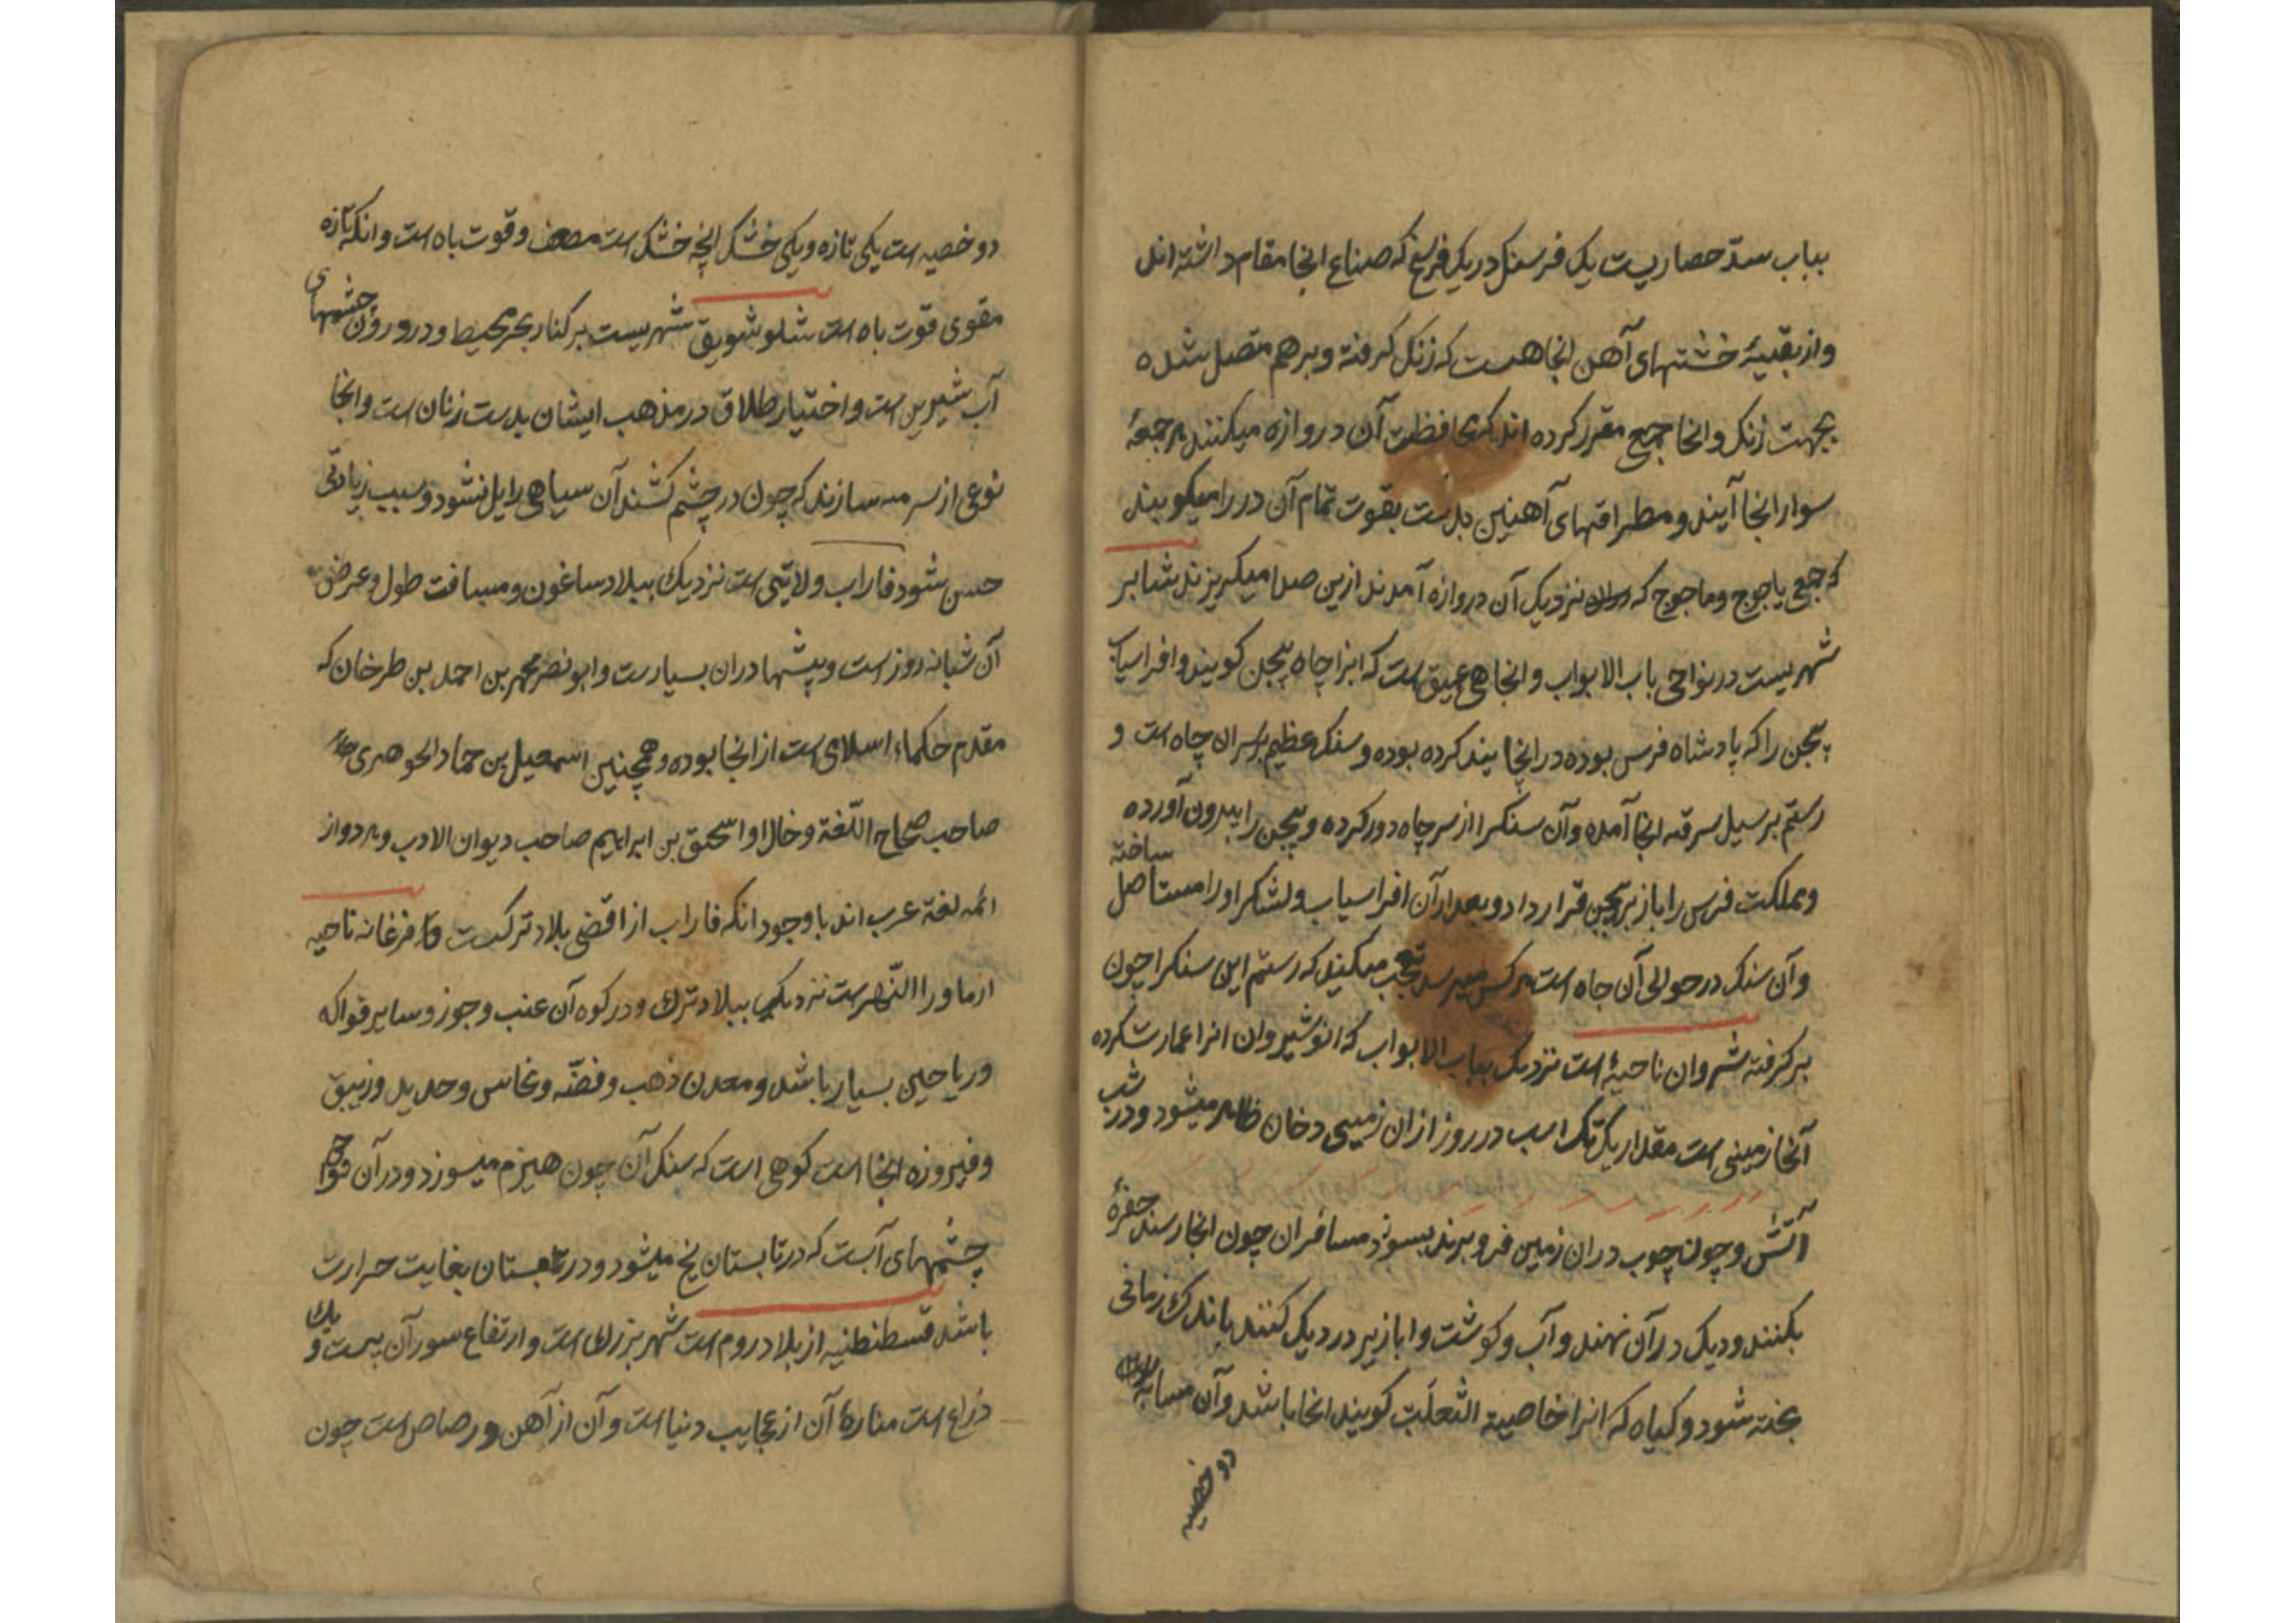 بباب سدّ حصاریست یک فرسنک در یک فرسخ که صناع انجا مقام داشته اند
و از بقیهٔ خشتهای آهن انجا هست که زنک کرفته و برهم متصل شده
بجهت زنک و انجا جمعی مقرر کرده اند که محافظت آن دروازه میکنند هر جمعهٔ
سوار انجا آیند و مطراقهای آهنین بدست بقوت تمام آن در را میکوبند
که جمعی یاجوج و ماجوج که نزدیک آن دروازه آمدند ازین صدا میکریزند شابر
شهریست در نواحی باب الابواب و انجا چاهی عمیق است که انرا چاه بیجن کویند و افراسیاب
بیجن را که پادشاه فرس بوده در انجا بند کرده بوده و سنک عظیم بر سر ان چاه است و
رستم بر سبیل سرقه انجا آمده و آن سنکرا از سر چاه دور کرده و بیجن را بیرون آورده
و مملکت فرس را باز بر بیجن قرار داد و بعد از آن افراسیاب و لشکر او را مستاصل ساخته
و آن سنک در حوالی آن چاه است هر کس میرسد تعجب میکنید که رستم این سنکرا چون
بر کرفته شروان ناحیهٔ است نزدیک بباب الابواب که انوشیروان انرا عمارت کرده
آنجا زمینی است مقدار یک تک اسب در روز از ان زمین دخان ظاهر میشود و در شب
آتش و چون چوب در ان زمین فرو برند بسوزد مسافران چون انجا رسند حفرهٔ
بکنند و دیک در آن نهند و آب و کوشت و ابازیر در دیک کنند باندک زمانی
پخته شود و کیاه که انرا خاصیة الثعلب کویند انجا باشد و آن مشابه
دو خصیه
دو خصیه است یکی تازه و یکی خشک انچه خشک است مضعف و قوت باه است و انکه تازه
مقوی قوت باه است شلوشویق شهریست بر کنار بحر محیط و در ورون چشمهای
آب شیرین است و اختیار طلاق در مذهب ایشان بدست زنان است و انجا
نوعی از سرمه سازند که چون در چشم کشند آن سیاهی زایل نشود و سبب زیادتی
حسن شود فاراب ولایتی است نزدیک ببلاد ساغون و مسافت طول و عرض
آن شبانه روز است و بیشها در ان بسیارست و ابو نصر محمد بن احمد بن طرخان که
مقدم حکماء اسلامی است از انجا بوده و همچنین اسمعیل بن حماد الجوهری
صاحب صحاح اللّغة و خال او اسحق بن ابراهیم صاحب دیوان الادب و هر دو از
ائمه لغة عرب اند با وجود انکه فاراب از اقصی بلاد ترکست فرغانه ناحیه
از ماورا النّهرست نزدیکی ببلاد ترک و در کوه آن عنب و جوز و سایر فواکه
و ریاحین بسیار باشد و معدن ذهب و فضّه و نحاس و حدید و زیبق
و فیروزه انجا است کوهی است که سنک آن چون هیزم میسوزد و در آن نواحی
چشمهای آبست که در تابستان یخ میشود و در زمستان بغایت حرارت
باشد قسطنطنیه از بلاد روم است شهر بزرک است و ارتفاع سور آن بیست و یک
ذراع است منارهٔ آن از عجایب دنیا است و آن از آهن و رصاص است چون